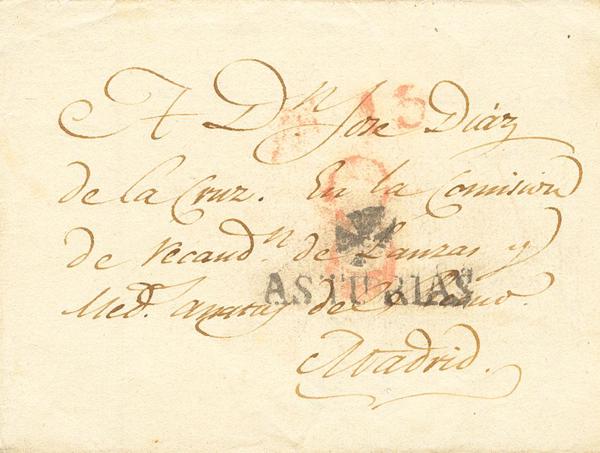 A Dn. Jose Diaz
de la Cruz. En la Comision
de recaudn. de Lanzas y
Med. Anatas del Reino.
ASTURIAS
Madrid.